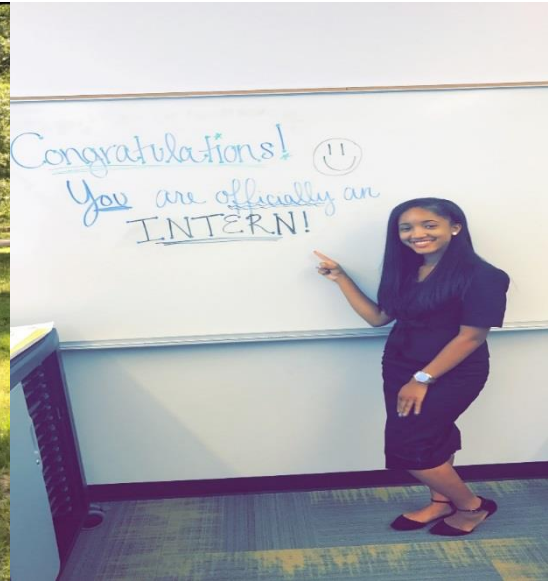 Congratulations!
You are officially an
INTERN!